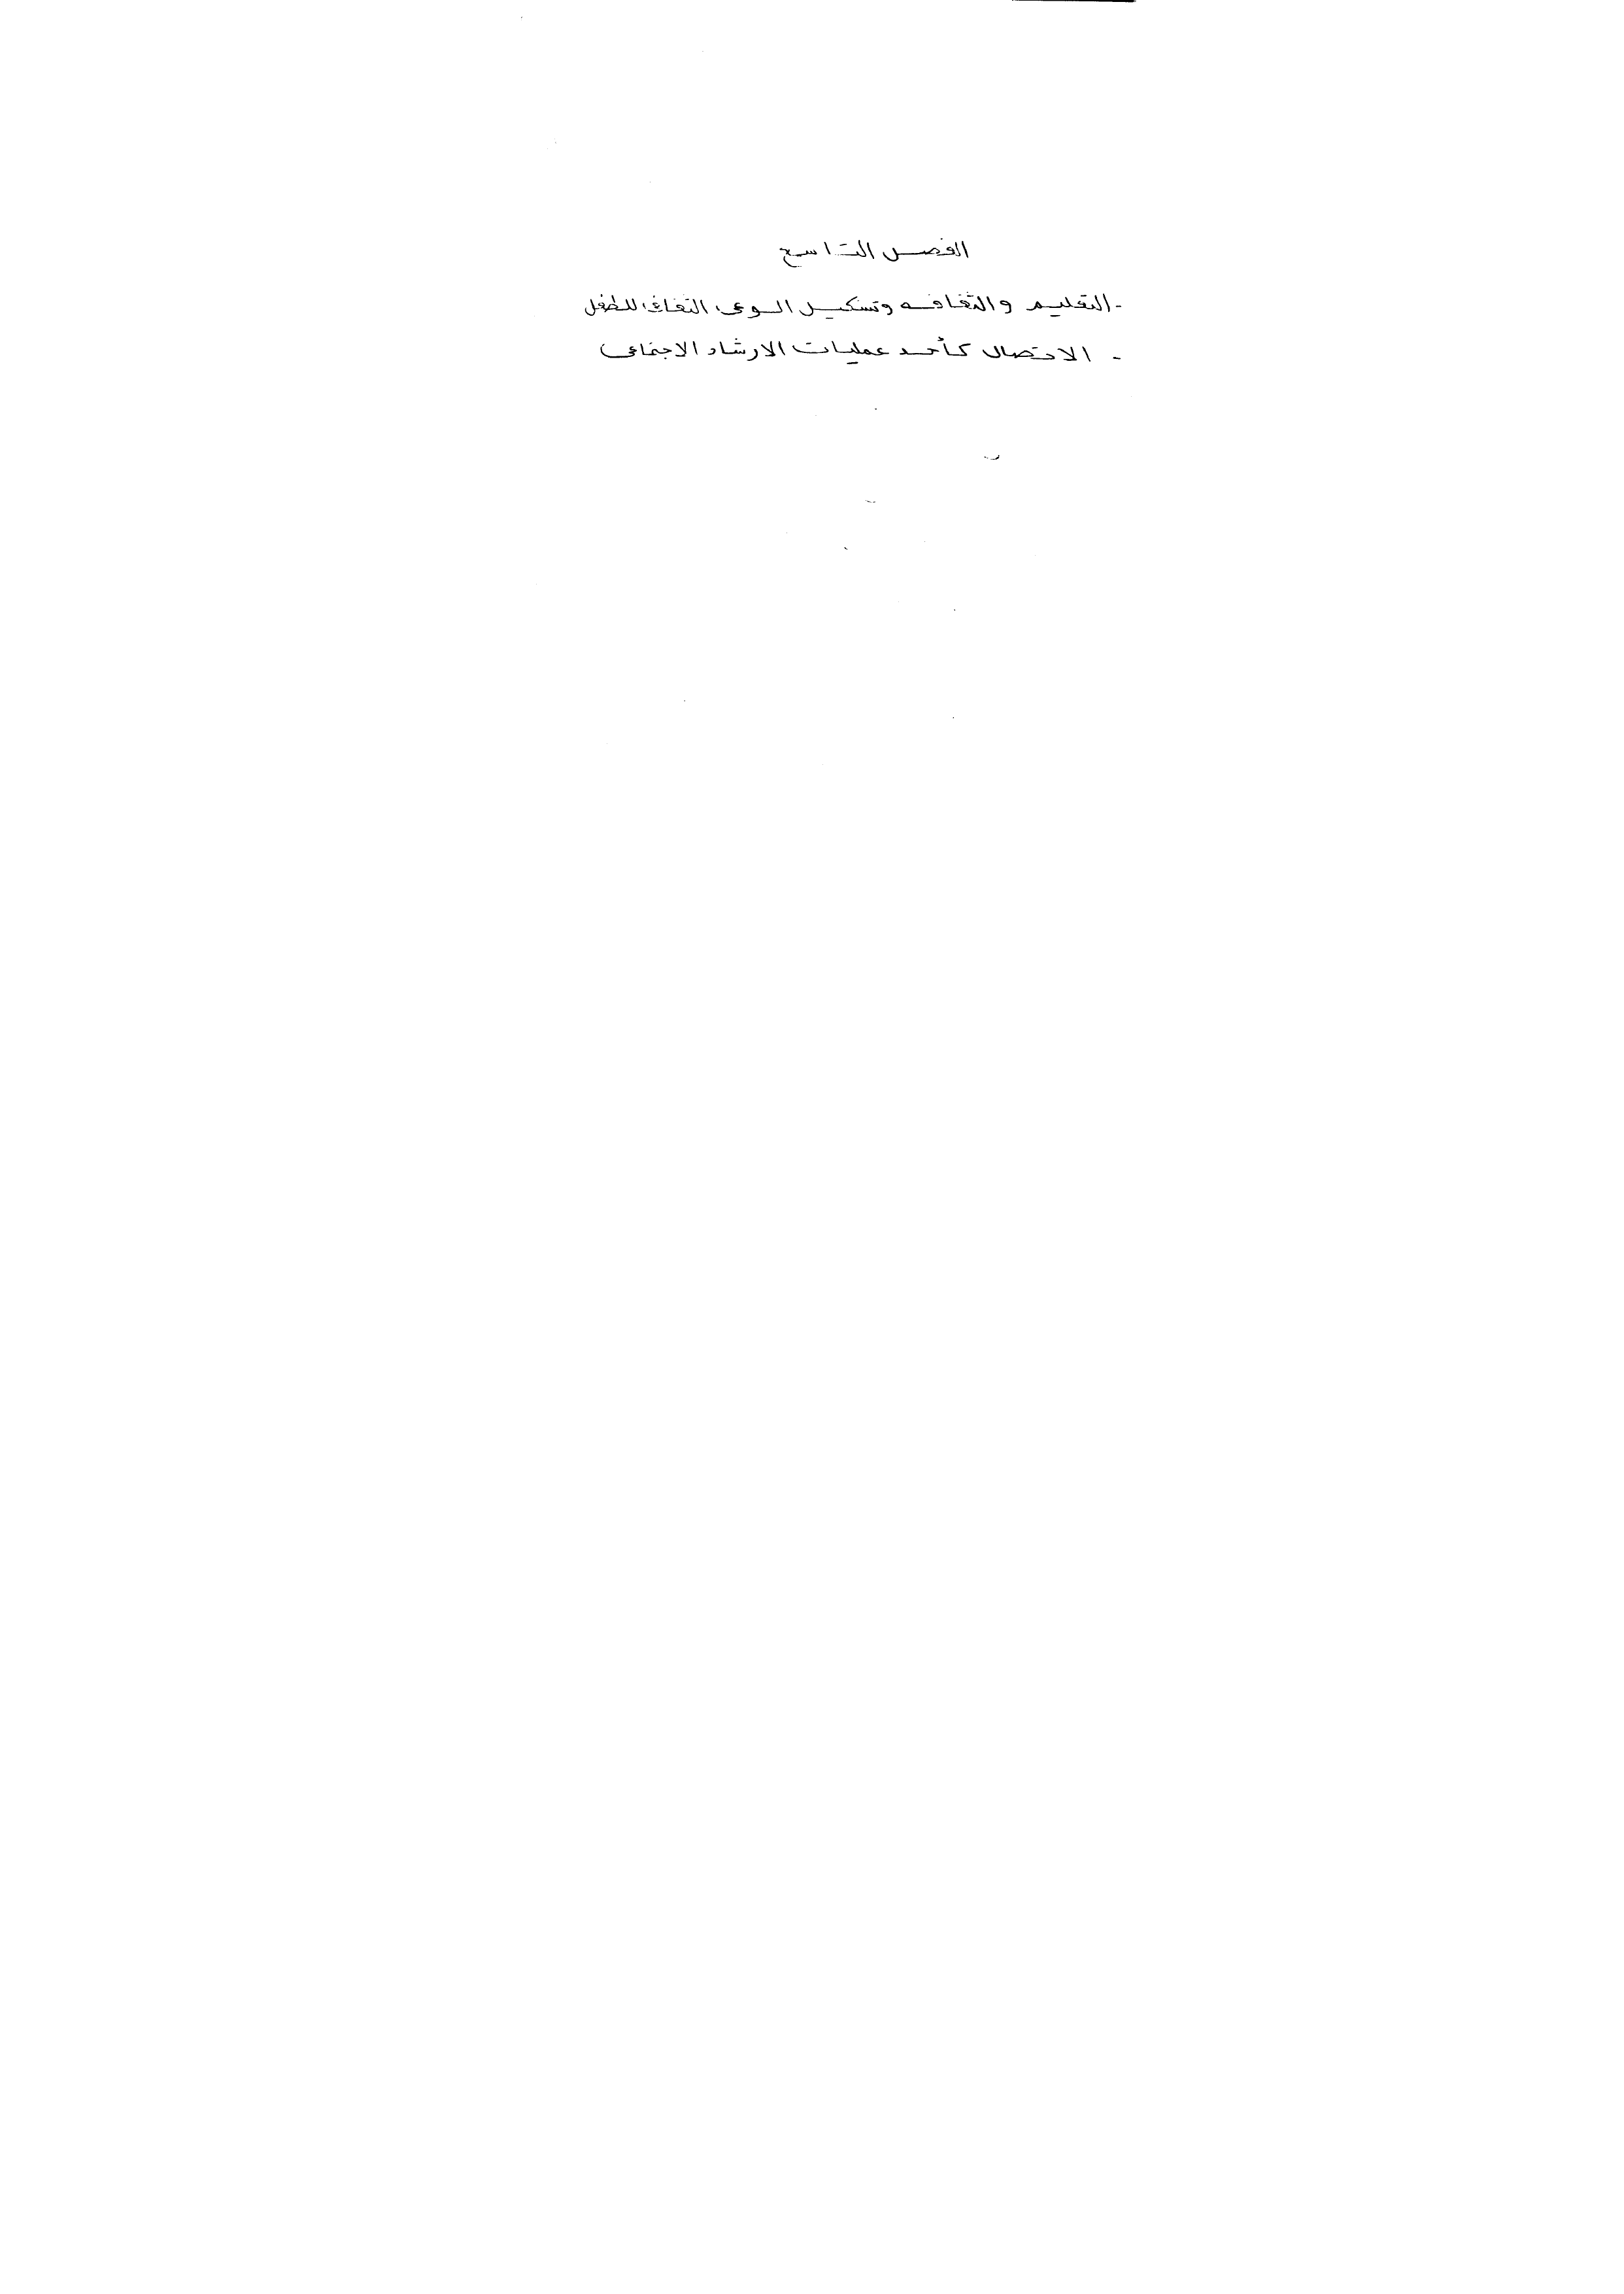 الفصل التاسع
- التعليم والثقافه وتشكيل الوعى الثقافى للطفل
- الاتصال كأحد عمليات الارشاد الاجتماعى